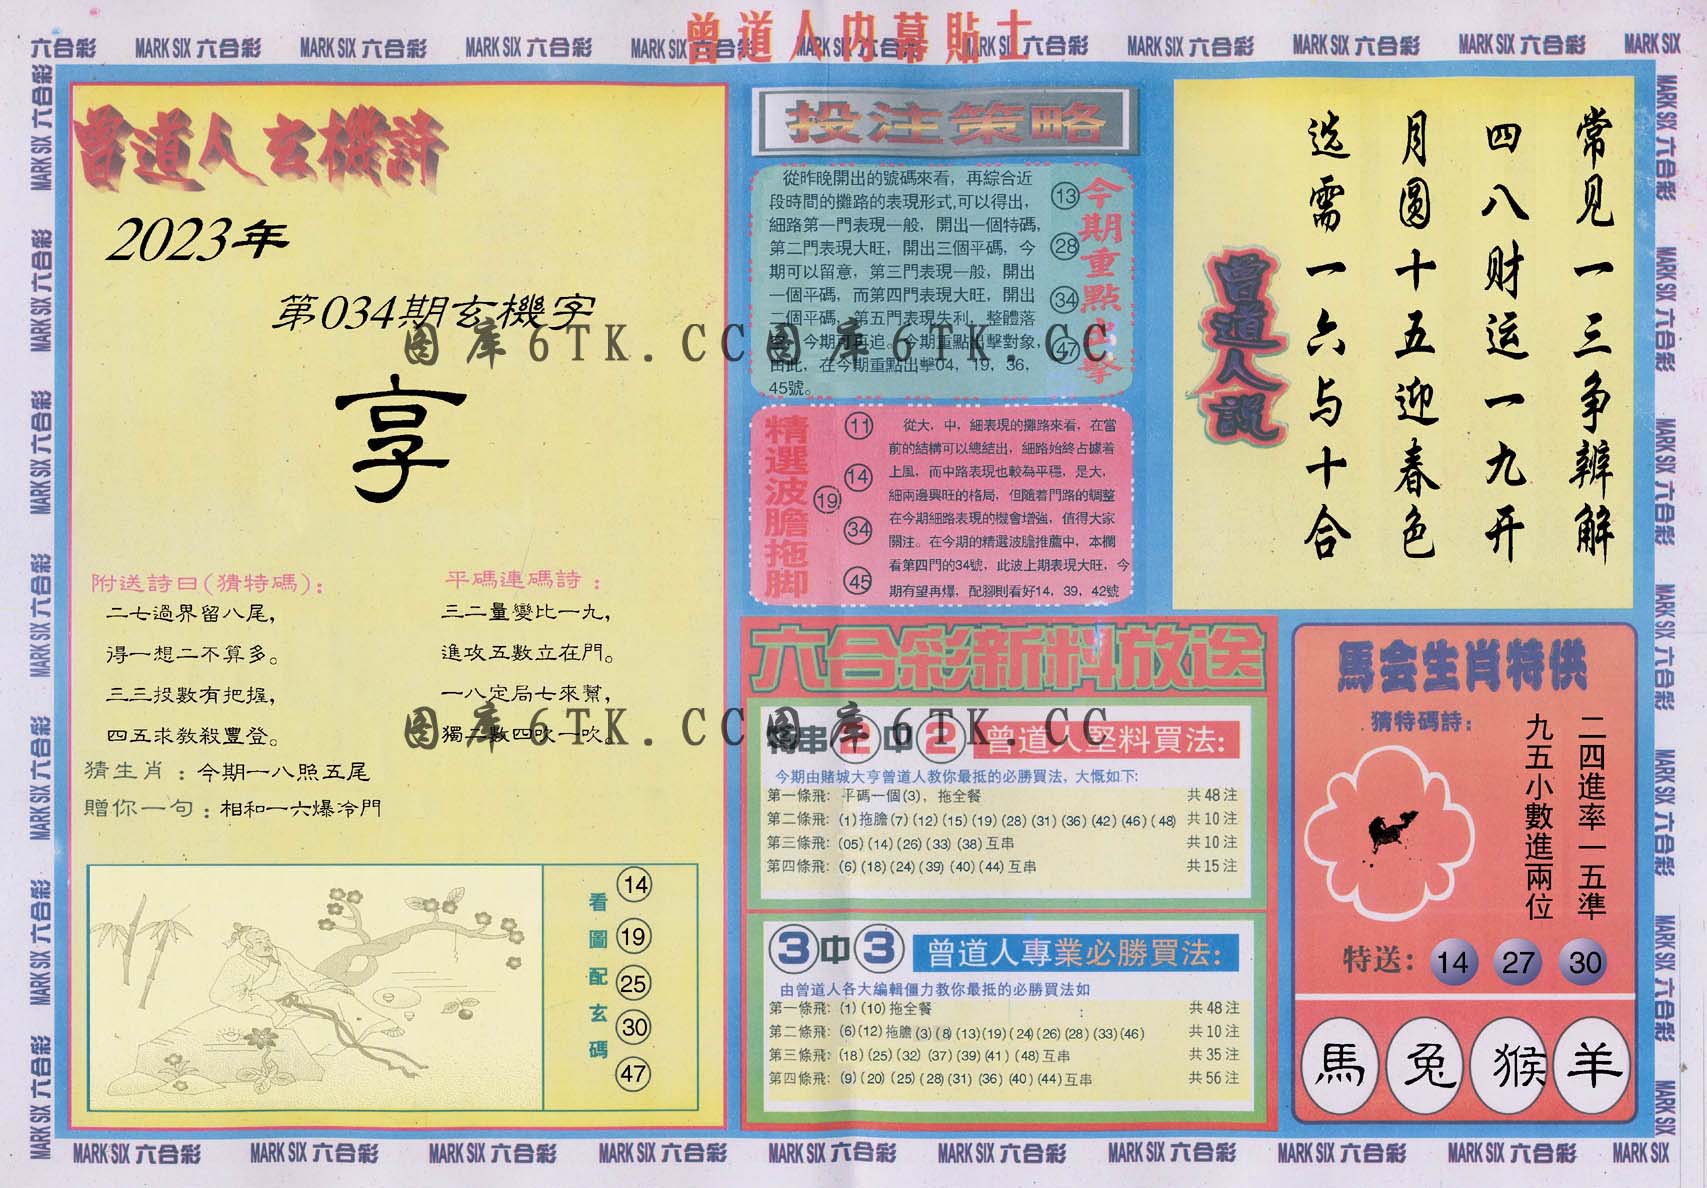 曾道人内幕貼士
六合彩 MARK SIX 六合彩 MARK SIX 六合彩 MARK SIX 六合彩 MARK SIX 六合彩 MARK SIX 六合彩 MARK SIX 六合彩 MARK SIX 六合彩 MARK SIX 六合彩 MARK SIX 六合彩 MARK SIX
曾道人玄機詩
2023年
第034期玄機字
享
附送詩曰(猜特碼):
二七過界留八尾,
得一想二不算多。
三三投數有把握,
四五求教殺豐登。
平碼連碼詩：
三二量變比一九,
進攻五數立在門。
一八定局七來幫,
獨二數四吹一吹。
猜生肖：今期一八照五尾
贈你一句：相和一六爆冷門
看圖配玄碼
14
19
25
30
47
投注策略
從昨晚開出的號碼來看，再綜合近
段時間的攤路的表現形式,可以得出，
細路第一門表現一般，開出一個特碼，
第二門表現大旺，開出三個平碼，今
期可以留意，第三門表現一般，開出
一個平碼，而第四門表現大旺，開出
二個平碼，第五門表現失利，整體落
，今期可再追。今期重點出擊對象，
由此，在今期重點出擊04，19，36，
45號。
今期重點出擊
13
28
34
47
精選波膽拖脚
11
14
19
34
45
從大，中，細表現的攤路來看，在當
前的結構可以總結出，細路始終占據着
上風，而中路表現也較為平穩，是大，
細兩邊興旺的格局，但隨着門路的調整
在今期細路表現的機會增強，值得大家
關注。在今期的精選波膽推薦中，本欄
看第四門的34號，此波上期表現大旺，今
期有望再爆，配腳則看好14，39，42號
常见一三争辨解
四八财运一九开
月圆十五迎春色
选需一六与十合
曾道人說
六合彩新料放送
特串2中2 曾道人堅料買法:
今期由賭城大亨曾道人教你最抵的必勝買法，大慨如下:
第一條飛: 平碼一個(3)，拖全餐 共48注
第二條飛: (1)拖膽(7)(12)(15)(19)(28)(31)(36)(42)(46)(48) 共10注
第三條飛: (05)(14)(26)(33)(38)互串 共10注
第四條飛: (6)(18)(24)(39)(40)(44)互串 共15注
3中3 曾道人專業必勝買法:
由曾道人各大編輯僵力教你最抵的必勝買法如
第一條飛: (1)(10)拖全餐 共48注
第二條飛: (6)(12)拖膽(3)(8)(13)(19)(24)(26)(28)(33)(46) 共10注
第三條飛: (18)(25)(32)(37)(39)(41)(48)互串 共35注
第四條飛: (9)(20)(25)(28)(31)(36)(40)(44)互串 共56注
馬会生肖特供
猜特碼詩：
二四進率一五準
九五小數進兩位
特送： 14 27 30
馬 兔 猴 羊
图库6TK.CC图库6TK.CC
图库6TK.CC图库6TK.CC
MARK SIX 六合彩 MARK SIX 六合彩 MARK SIX 六合彩 MARK SIX 六合彩 MARK SIX 六合彩 MARK SIX 六合彩 MARK SIX 六合彩 MARK SIX 六合彩 MARK SIX 六合彩 MARK SIX